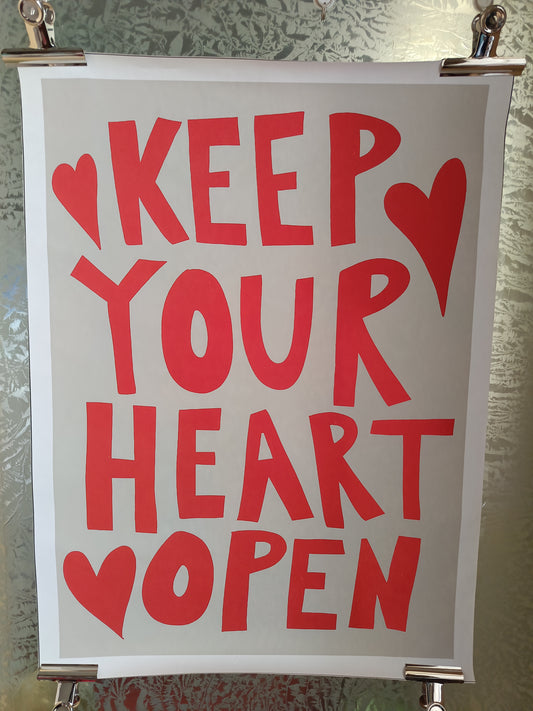 KEEP
YOUR
HEART
OPEN